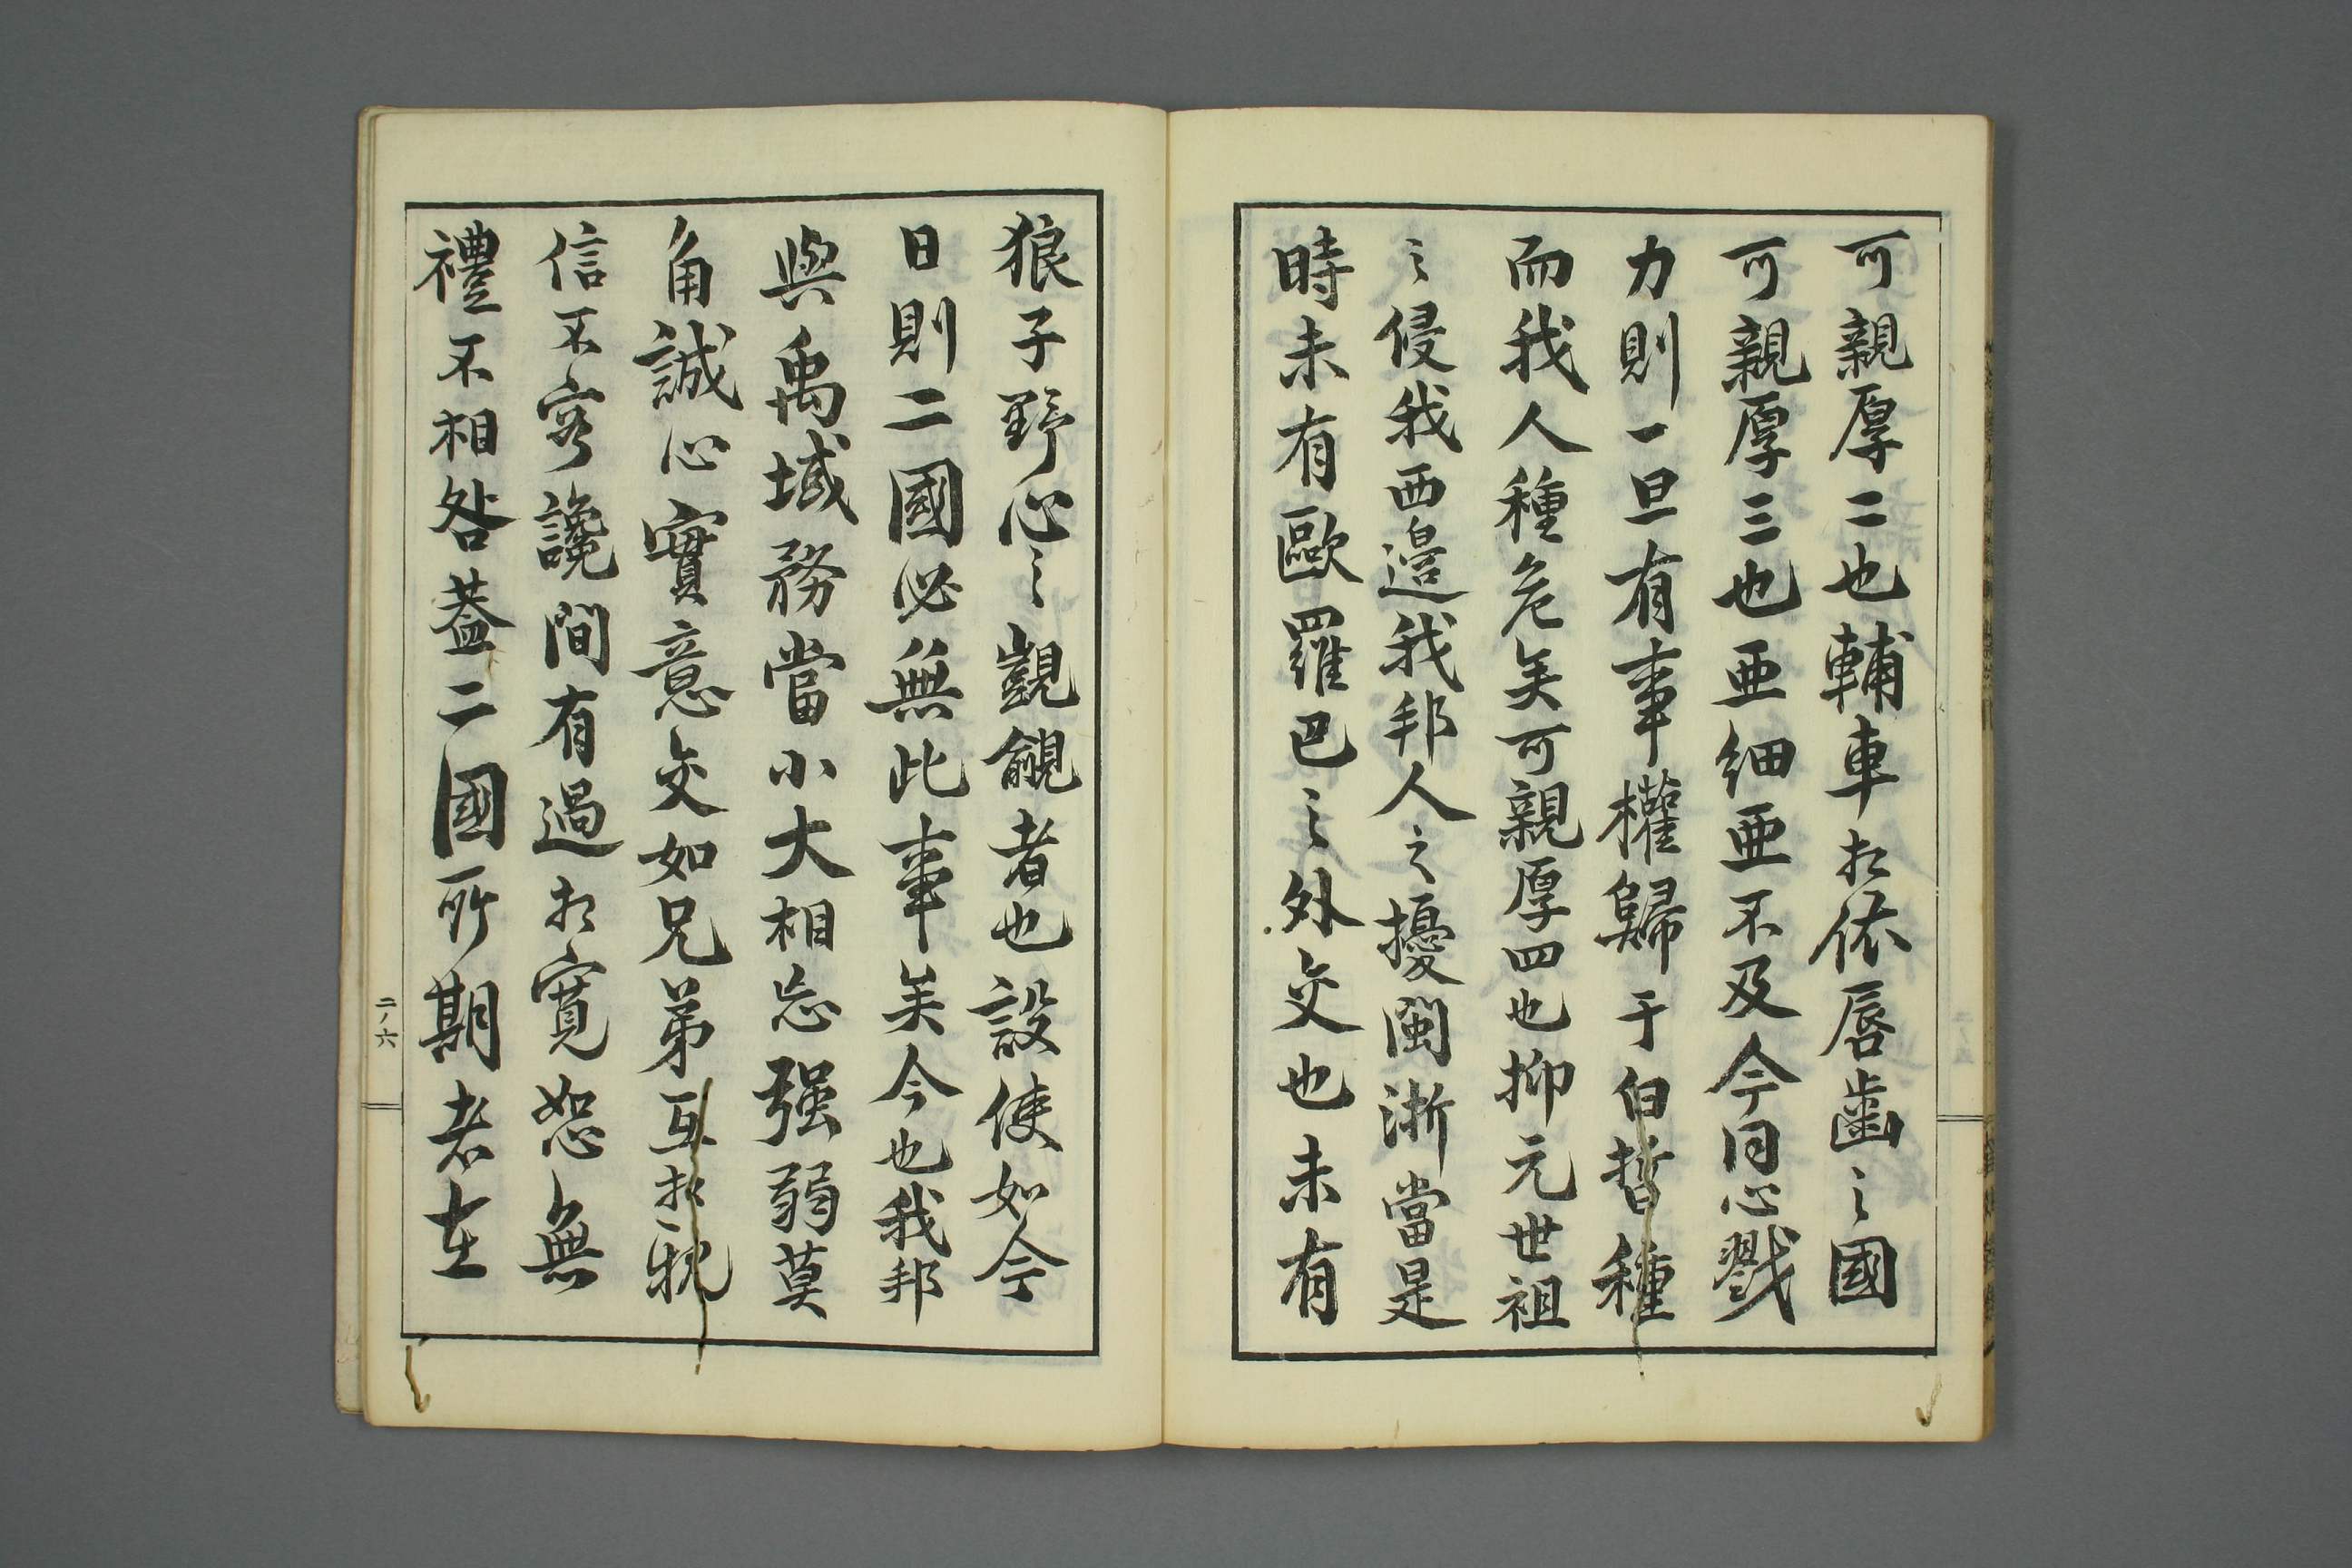 可親厚二也輔車相依唇齒之國
可親厚三也亜細亜不及今同心戮
力則一旦有事權歸于白晳種
而我人種危矣可親厚四也抑元世祖
之侵我西邉我邦人之擾閩浙當是
時未有歐羅巴之外交也未有
狼子野心之覬覦者也設使如今
日則二國必無此事矣今也我邦
與禹域務當小大相忘强弱莫
角誠心實意交如兄弟互相親
信不容讒間有過相寛恕無
禮不相咎蓋二國所期者在
二ノ六